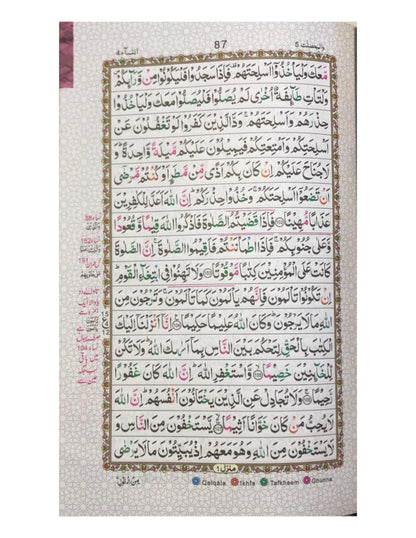 النسآء ٤ 87 والمحصنت ٥
مَّعَكَ وَلْيَاْخُذُوْۤا اَسْلِحَتَهُمْ ۫ فَاِذَا سَجَدُوْا فَلْيَكُوْنُوْا مِنْ وَّرَآئِكُمْ ۪
وَلْتَاْتِ طَآئِفَةٌ اُخْرٰى لَمْ يُصَلُّوْا فَلْيُصَلُّوْا مَعَكَ وَلْيَاْخُذُوْا
حِذْرَهُمْ وَاَسْلِحَتَهُمْ ۚ وَدَّ الَّذِيْنَ كَفَرُوْا لَوْ تَغْفُلُوْنَ عَنْ
اَسْلِحَتِكُمْ وَاَمْتِعَتِكُمْ فَيَمِيْلُوْنَ عَلَيْكُمْ مَّيْلَةً وَّاحِدَةً ؕ وَ
لَا جُنَاحَ عَلَيْكُمْ اِنْ كَانَ بِكُمْ اَذًى مِّنْ مَّطَرٍ اَوْ كُنْتُمْ مَّرْضٰۤى
اَنْ تَضَعُوْۤا اَسْلِحَتَكُمْ ۚ وَخُذُوْا حِذْرَكُمْ ؕ اِنَّ اللّٰهَ اَعَدَّ لِلْكٰفِرِيْنَ
عَذَابًا مُّهِيْنًا ﴿۱۰۲﴾ فَاِذَا قَضَيْتُمُ الصَّلٰوةَ فَاذْكُرُوا اللّٰهَ قِيٰمًا وَّقُعُوْدًا
وَّعَلٰى جُنُوْبِكُمْ ۚ فَاِذَا اطْمَاْنَنْتُمْ فَاَقِيْمُوا الصَّلٰوةَ ۚ اِنَّ الصَّلٰوةَ
كَانَتْ عَلَى الْمُؤْمِنِيْنَ كِتٰبًا مَّوْقُوْتًا ﴿۱۰۳﴾ وَلَا تَهِنُوْا فِى ابْتِغَآءِ الْقَوْمِ ؕ
اِنْ تَكُوْنُوْا تَاْلَمُوْنَ فَاِنَّهُمْ يَاْلَمُوْنَ كَمَا تَاْلَمُوْنَ ۚ وَتَرْجُوْنَ مِنَ
اللّٰهِ مَا لَا يَرْجُوْنَ ؕ وَكَانَ اللّٰهُ عَلِيْمًا حَكِيْمًا ﴿۱۰۴﴾ اِنَّاۤ اَنْزَلْنَاۤ اِلَيْكَ
الْكِتٰبَ بِالْحَقِّ لِتَحْكُمَ بَيْنَ النَّاسِ بِمَاۤ اَرٰىكَ اللّٰهُ ؕ وَلَا تَكُنْ
لِّلْخَآئِنِيْنَ خَصِيْمًا ﴿۱۰۵﴾ وَّاسْتَغْفِرِ اللّٰهَ ؕ اِنَّ اللّٰهَ كَانَ غَفُوْرًا
رَّحِيْمًا ﴿۱۰۶﴾ وَلَا تُجَادِلْ عَنِ الَّذِيْنَ يَخْتَانُوْنَ اَنْفُسَهُمْ ؕ اِنَّ اللّٰهَ
لَا يُحِبُّ مَنْ كَانَ خَوَّانًا اَثِيْمًا ﴿۱۰۷﴾ يَّسْتَخْفُوْنَ مِنَ النَّاسِ وَ
لَا يَسْتَخْفُوْنَ مِنَ اللّٰهِ وَهُوَ مَعَهُمْ اِذْ يُبَيِّتُوْنَ مَا لَا يَرْضٰى
منزل ١
Qalqala Ikhfa Tafkheem Ghunna